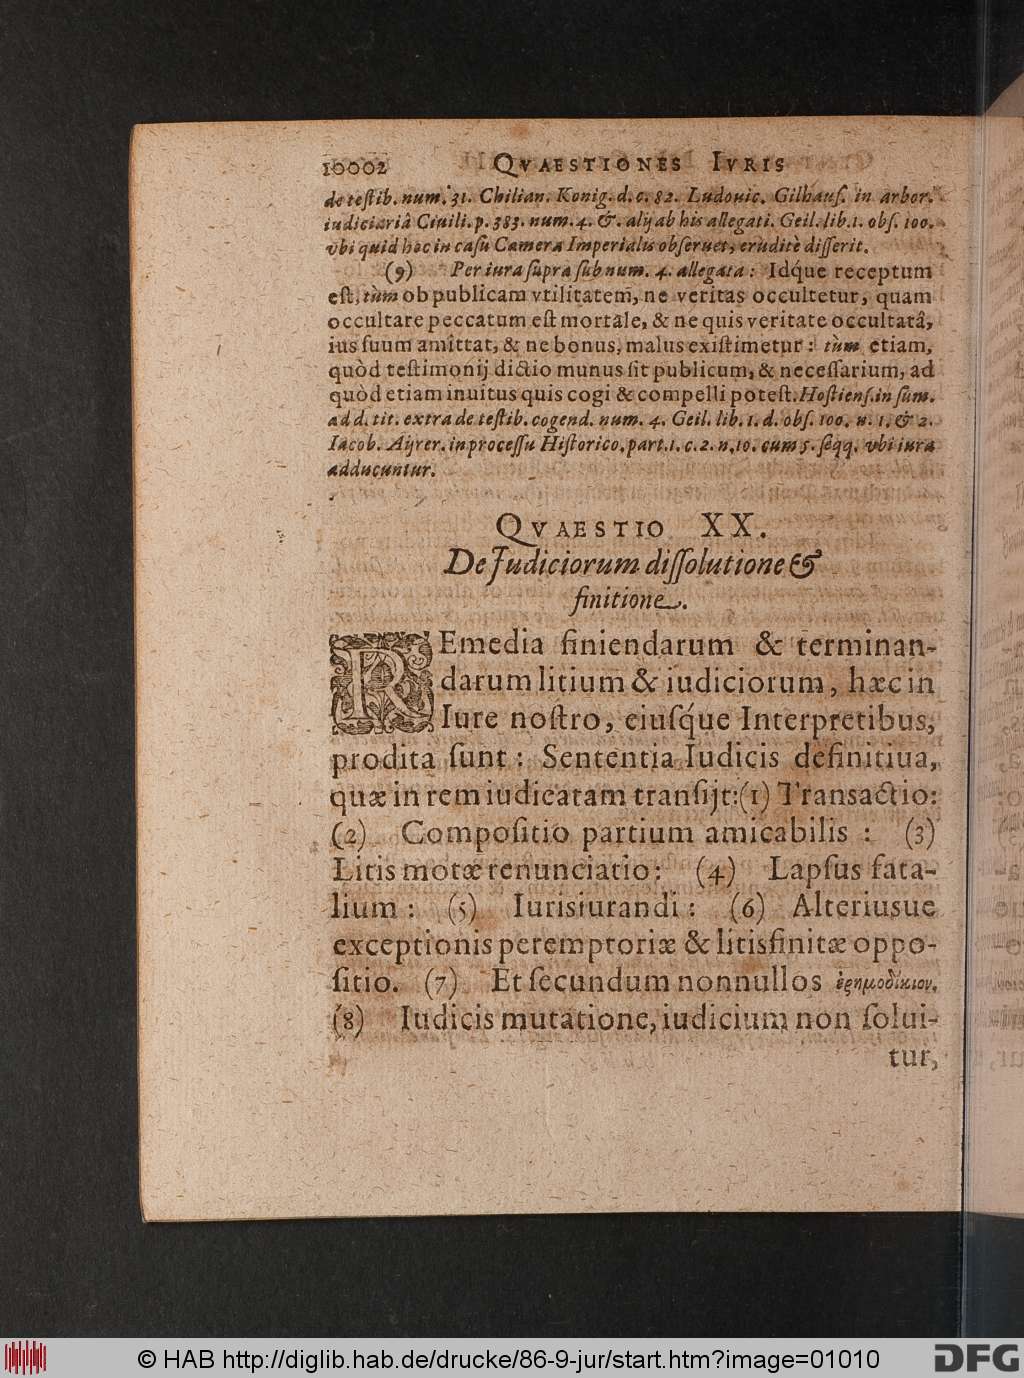 10002 QVAESTIONES IVRIS
de teſtib. num. 31. Chilian. Konig. d. c. 82. Ludouic. Gilhauſ. in arbor.
iudiciariâ Ciuili. p. 383. num. 4. &. alij ab his allegati. Geil. lib. 1. obſ. 100.
vbi quid hoc in caſu Camera Imperialis obſeruet, eruditè diſſerit.
(9) Per iura ſupra ſub num. 4. allegata: Idq́ue receptum
eſt, tùm ob publicam vtilitatem, ne veritas occultetur, quam
occultare peccatum eſt mortale, & ne quis veritate occultatâ,
ius ſuum amittat, & ne bonus, malus exiſtimetur: tùm etiam,
quòd teſtimonij dictio munus ſit publicum, & neceſſarium, ad
quòd etiam inuitus quis cogi & compelli poteſt. Hoſtienſ. in ſum.
ad d. tit. extra de teſtib. cogend. num. 4. Geil. lib. 1. d. obſ. 100. n. 1. & 2.
Iacob. Aÿrer. in proceſſu Hiſtorico, part. 1. c. 2. n. 10. cum 5. ſeqq. vbi iura
adducuntur.
QVAESTIO XX.
De Judiciorum diſſolutione &
finitione.
REmedia finiendarum & terminan-
darum litium & iudiciorum, hæc in
Iure noſtro, eiuſq́ue Interpretibus,
prodita ſunt: Sententia Iudicis definitiua,
quæ in rem iudicatam tranſijt: (1) Transactio:
(2) Compoſitio partium amicabilis: (3)
Litis motæ renunciatio: (4) Lapſus fata-
lium: (5) Iurisiurandi: (6) Alteriusue
exceptionis peremptoriæ & litisfinitæ oppo-
ſitio. (7) Et ſecundum nonnullos ἐρημοδίκιον.
(8) Iudicis mutatione, iudicium non ſolui-
tur,
© HAB http://diglib.hab.de/drucke/86-9-jur/start.htm?image=01010
DFG